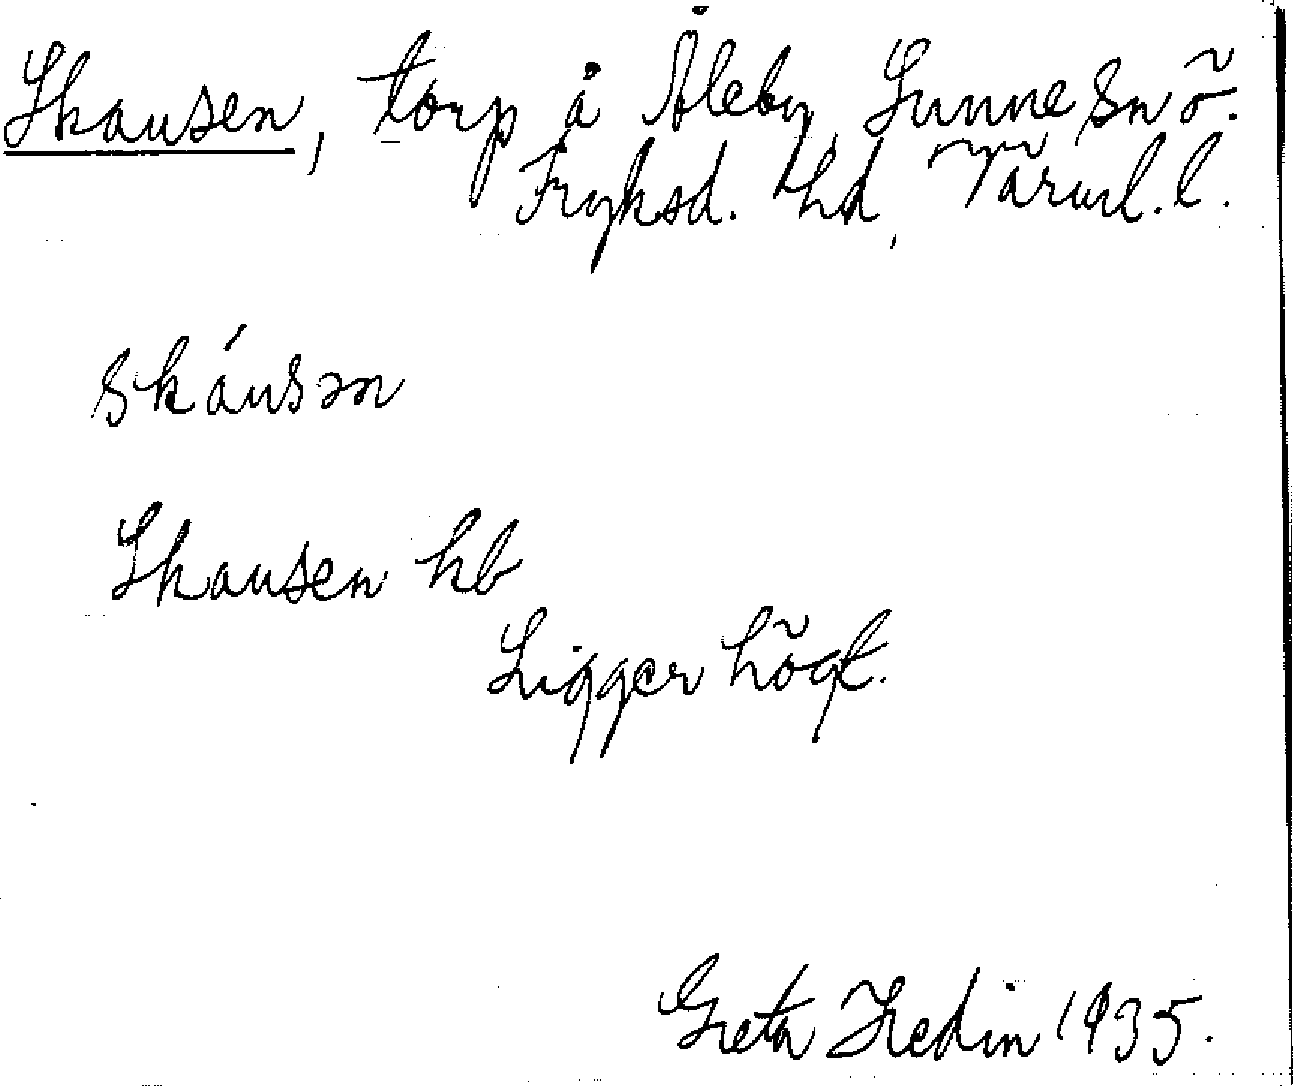 Skansen, torp å Åleby, Sunne sn ö.
Fryksd. hd, Värml. l.
skánsən
Skansen kb
Ligger högt.
Greta Hedin 1935.